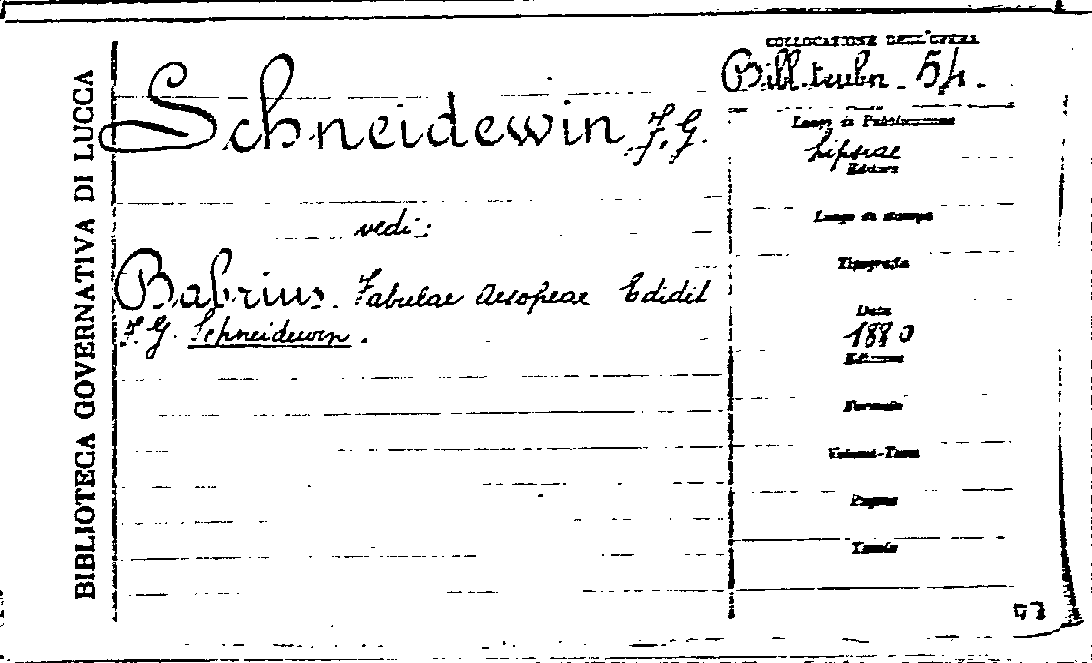 BIBLIOTECA GOVERNATIVA DI LUCCA
Schneidewin F. G.
vedi:
Babrius. Fabulae Aesopeae Edidit
F. G. Schneidewin.
COLLOCAZIONE DELL'OPERA
Bibl. teubn. 54.
Luogo di Pubblicazione
Lipsiae
Editore
Luogo di stampa
Tipografia
Data
1880
Edizione
Formato
Volumi-Tomi
Pagine
Tavole